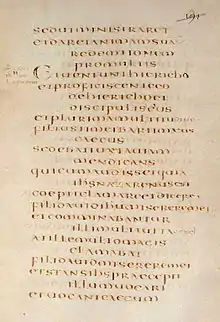 sedutministraret
etdaretanimamsuam
redemtionem
promultis
Etueniunthiericho
etproficiscenteeo
dehierichoet
discipuliseius
etplurimamultitudine
filiustimeibartimeus
caecus
sedebatiuxtauiam
mendicans
quicumaudissetquia
ihsnazarenusest
coepitclamareetdicere
filidauidihumisereremei
etcomminabantur
illimulti
atillemultomagis
clamabat
filidauidmisereremei
etstansihspraecepit
illumuocari
etuocantcaecum